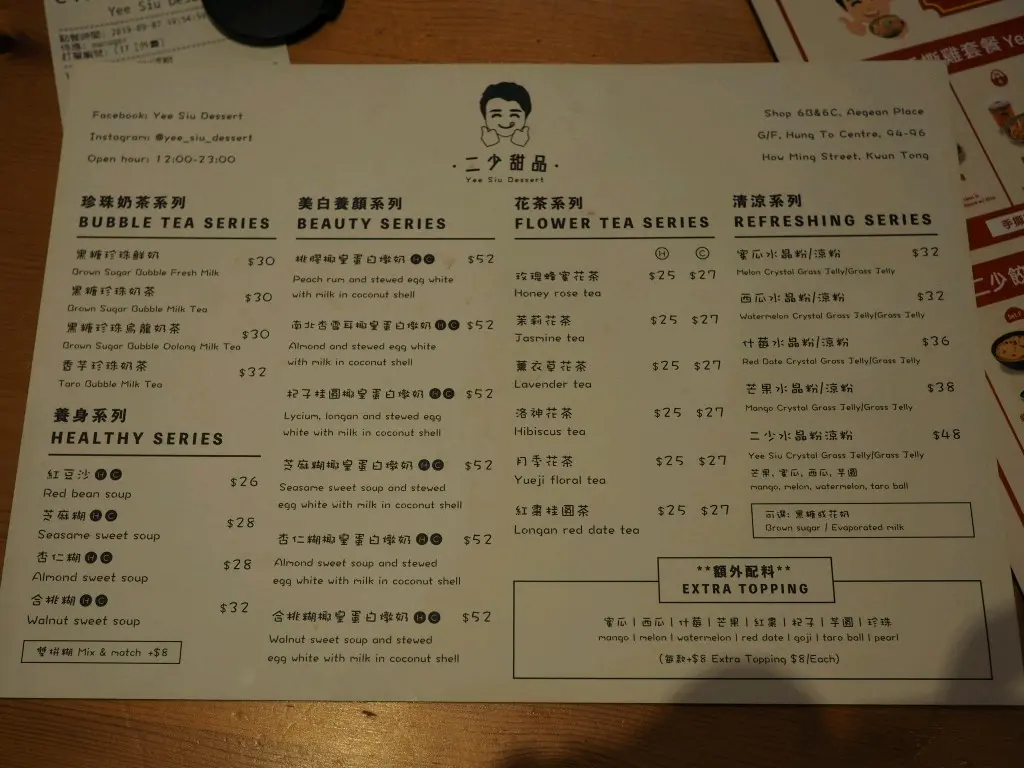 Yee Siu Dess
Facebook: Yee Siu Dessert
Instagram: @yee_siu_dessert
Open hour: 12:00-23:00
·二少甜品·
Yee Siu Dessert
Shop 6B&6C, Aegean Place
G/F, Hung To Centre, 94-96
How Ming Street, Kwun Tong
珍珠奶茶系列
BUBBLE TEA SERIES
黑糖珍珠鮮奶 $30
Brown Sugar Bubble Fresh Milk
黑糖珍珠奶茶 $30
Brown Sugar Bubble Milk Tea
黑糖珍珠烏龍奶茶 $30
Brown Sugar Bubble Oolong Milk Tea
香芋珍珠奶茶 $32
Taro Bubble Milk Tea
養身系列
HEALTHY SERIES
紅豆沙 H C $26
Red bean soup
芝麻糊 H C $28
Seasame sweet soup
杏仁糊 H C $28
Almond sweet soup
合桃糊 H C $32
Walnut sweet soup
雙拼糊 Mix & match +$8
美白養顏系列
BEAUTY SERIES
桃膠椰皇蛋白燉奶 H C $52
Peach rum and stewed egg white
with milk in coconut shell
南北杏雪耳椰皇蛋白燉奶 H C $52
Almond and stewed egg white
with milk in coconut shell
杞子桂圓椰皇蛋白燉奶 H C $52
Lycium, longan and stewed egg
white with milk in coconut shell
芝麻糊椰皇蛋白燉奶 H C $52
Seasame sweet soup and stewed
egg white with milk in coconut shell
杏仁糊椰皇蛋白燉奶 H C $52
Almond sweet soup and stewed
egg white with milk in coconut shell
合桃糊椰皇蛋白燉奶 H C $52
Walnut sweet soup and stewed
egg white with milk in coconut shell
花茶系列
FLOWER TEA SERIES
H C
玫瑰蜂蜜花茶 $25 $27
Honey rose tea
茉莉花茶 $25 $27
Jasmine tea
薰衣草花茶 $25 $27
Lavender tea
洛神花茶 $25 $27
Hibiscus tea
月季花茶 $25 $27
Yueji floral tea
紅棗桂圓茶 $25 $27
Longan red date tea
清涼系列
REFRESHING SERIES
蜜瓜水晶粉/涼粉 $32
Melon Crystal Grass Jelly/Grass Jelly
西瓜水晶粉/涼粉 $32
Watermelon Crystal Grass Jelly/Grass Jelly
什莓水晶粉/涼粉 $36
Red Date Crystal Grass Jelly/Grass Jelly
芒果水晶粉/涼粉 $38
Mango Crystal Grass Jelly/Grass Jelly
二少水晶粉涼粉 $48
Yee Siu Crystal Grass Jelly/Grass Jelly
芒果, 蜜瓜, 西瓜, 芋圓
mango, melon, watermelon, taro ball
可選: 黑糖或花奶
Brown sugar / Evaporated milk
**額外配料**
EXTRA TOPPING
蜜瓜 | 西瓜 | 什莓 | 芒果 | 紅棗 | 杞子 | 芋圓 | 珍珠
mango | melon | watermelon | red date | goji | taro ball | pearl
(每款+$8 Extra Topping $8/Each)
雞套餐 Ye
二少餃